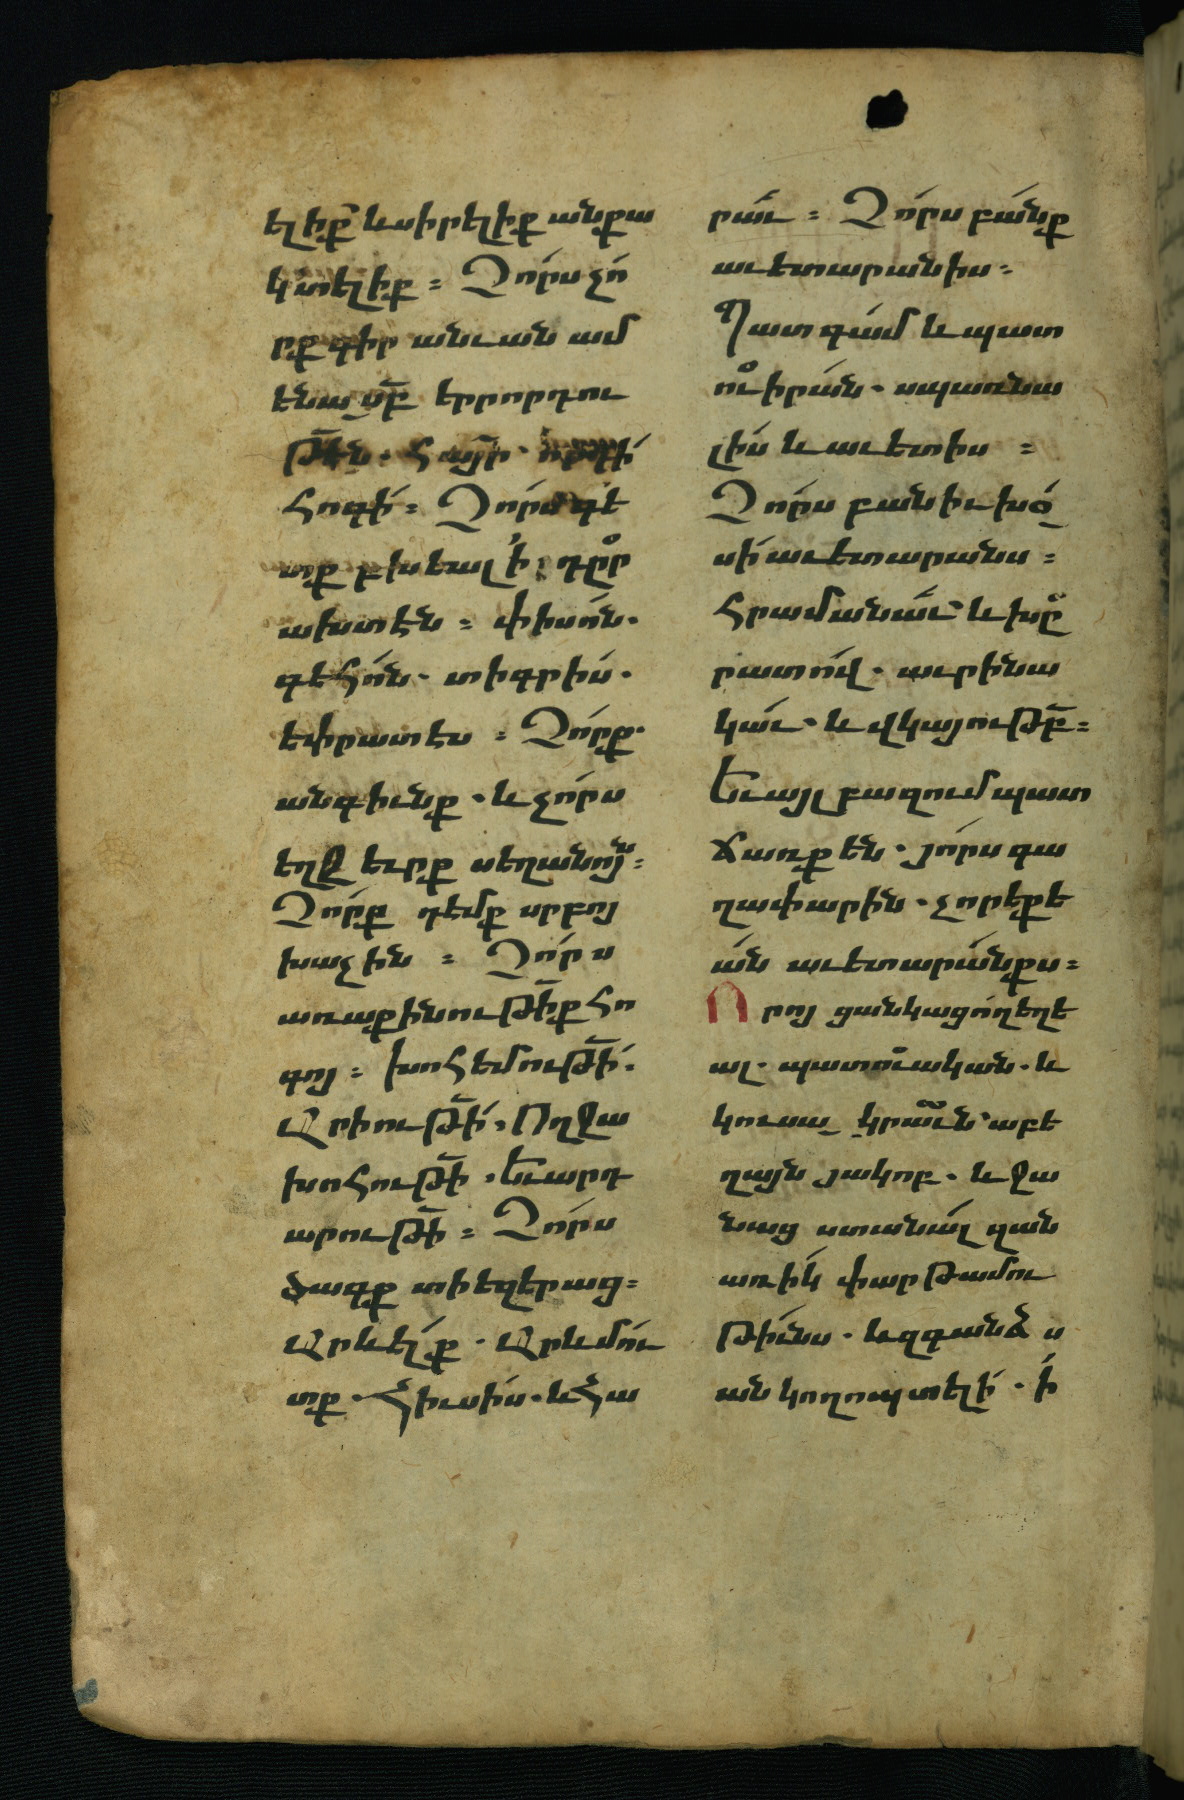 ելիք՟ և սիրելիք անքա
կտելիք ։ Չորս չո
րք գիր անուան ամ
ենա սբ երրորդու
թեն ․ Հայր ․
Հոգի ։ Չորս գե
տք բխեալ ի դըր
ախտէն ։ փիսոն ․
գեհոն ․ տիգրիս ․
եփրատես ։ Չորք ․
անգիւնք ․ և չորս
եղջեւրք սեղանոյն ։
Չորք դեմք սրբոյ
խաչին ։ Չորս
առաքինութիք հո
գոյ ։ խոհեմութի ․
Արիութի ․ Ողջա
խոհութի ․ Եւարդ
արութի ։ Չորս
ծագք տիեզերաց ։
Արևելք ․ Արևմու
տք ․ Հիւսիս ․ և հա
րաւ ։ Չորս բանք
աւետարանիս ։
Պատգամ և պատ
ուիրան ․ սպառնա
լիս և աւետիս ։
Չորս բանիւ խօ
սի աւետարանս ։
Հրամանաւ ․ և խըր
րատով ․ աւրինա
կաւ ․ և վկայութբ ։
Եւայլ բազում պատ
ճառք են ․ չորս գա
ղափարին ․ չորեքե
ան աւետարանքս ։
Որոյ ցանկացող եղե
ալ ․ պատուական ․ և
կուսա կրաւն աբե
ղայն յակոբ ․ և ջա
նաց ստանալ զան
առիկ փարթամու
թիւնս ․ և զգանձս
անկողոպտելի ․ ի